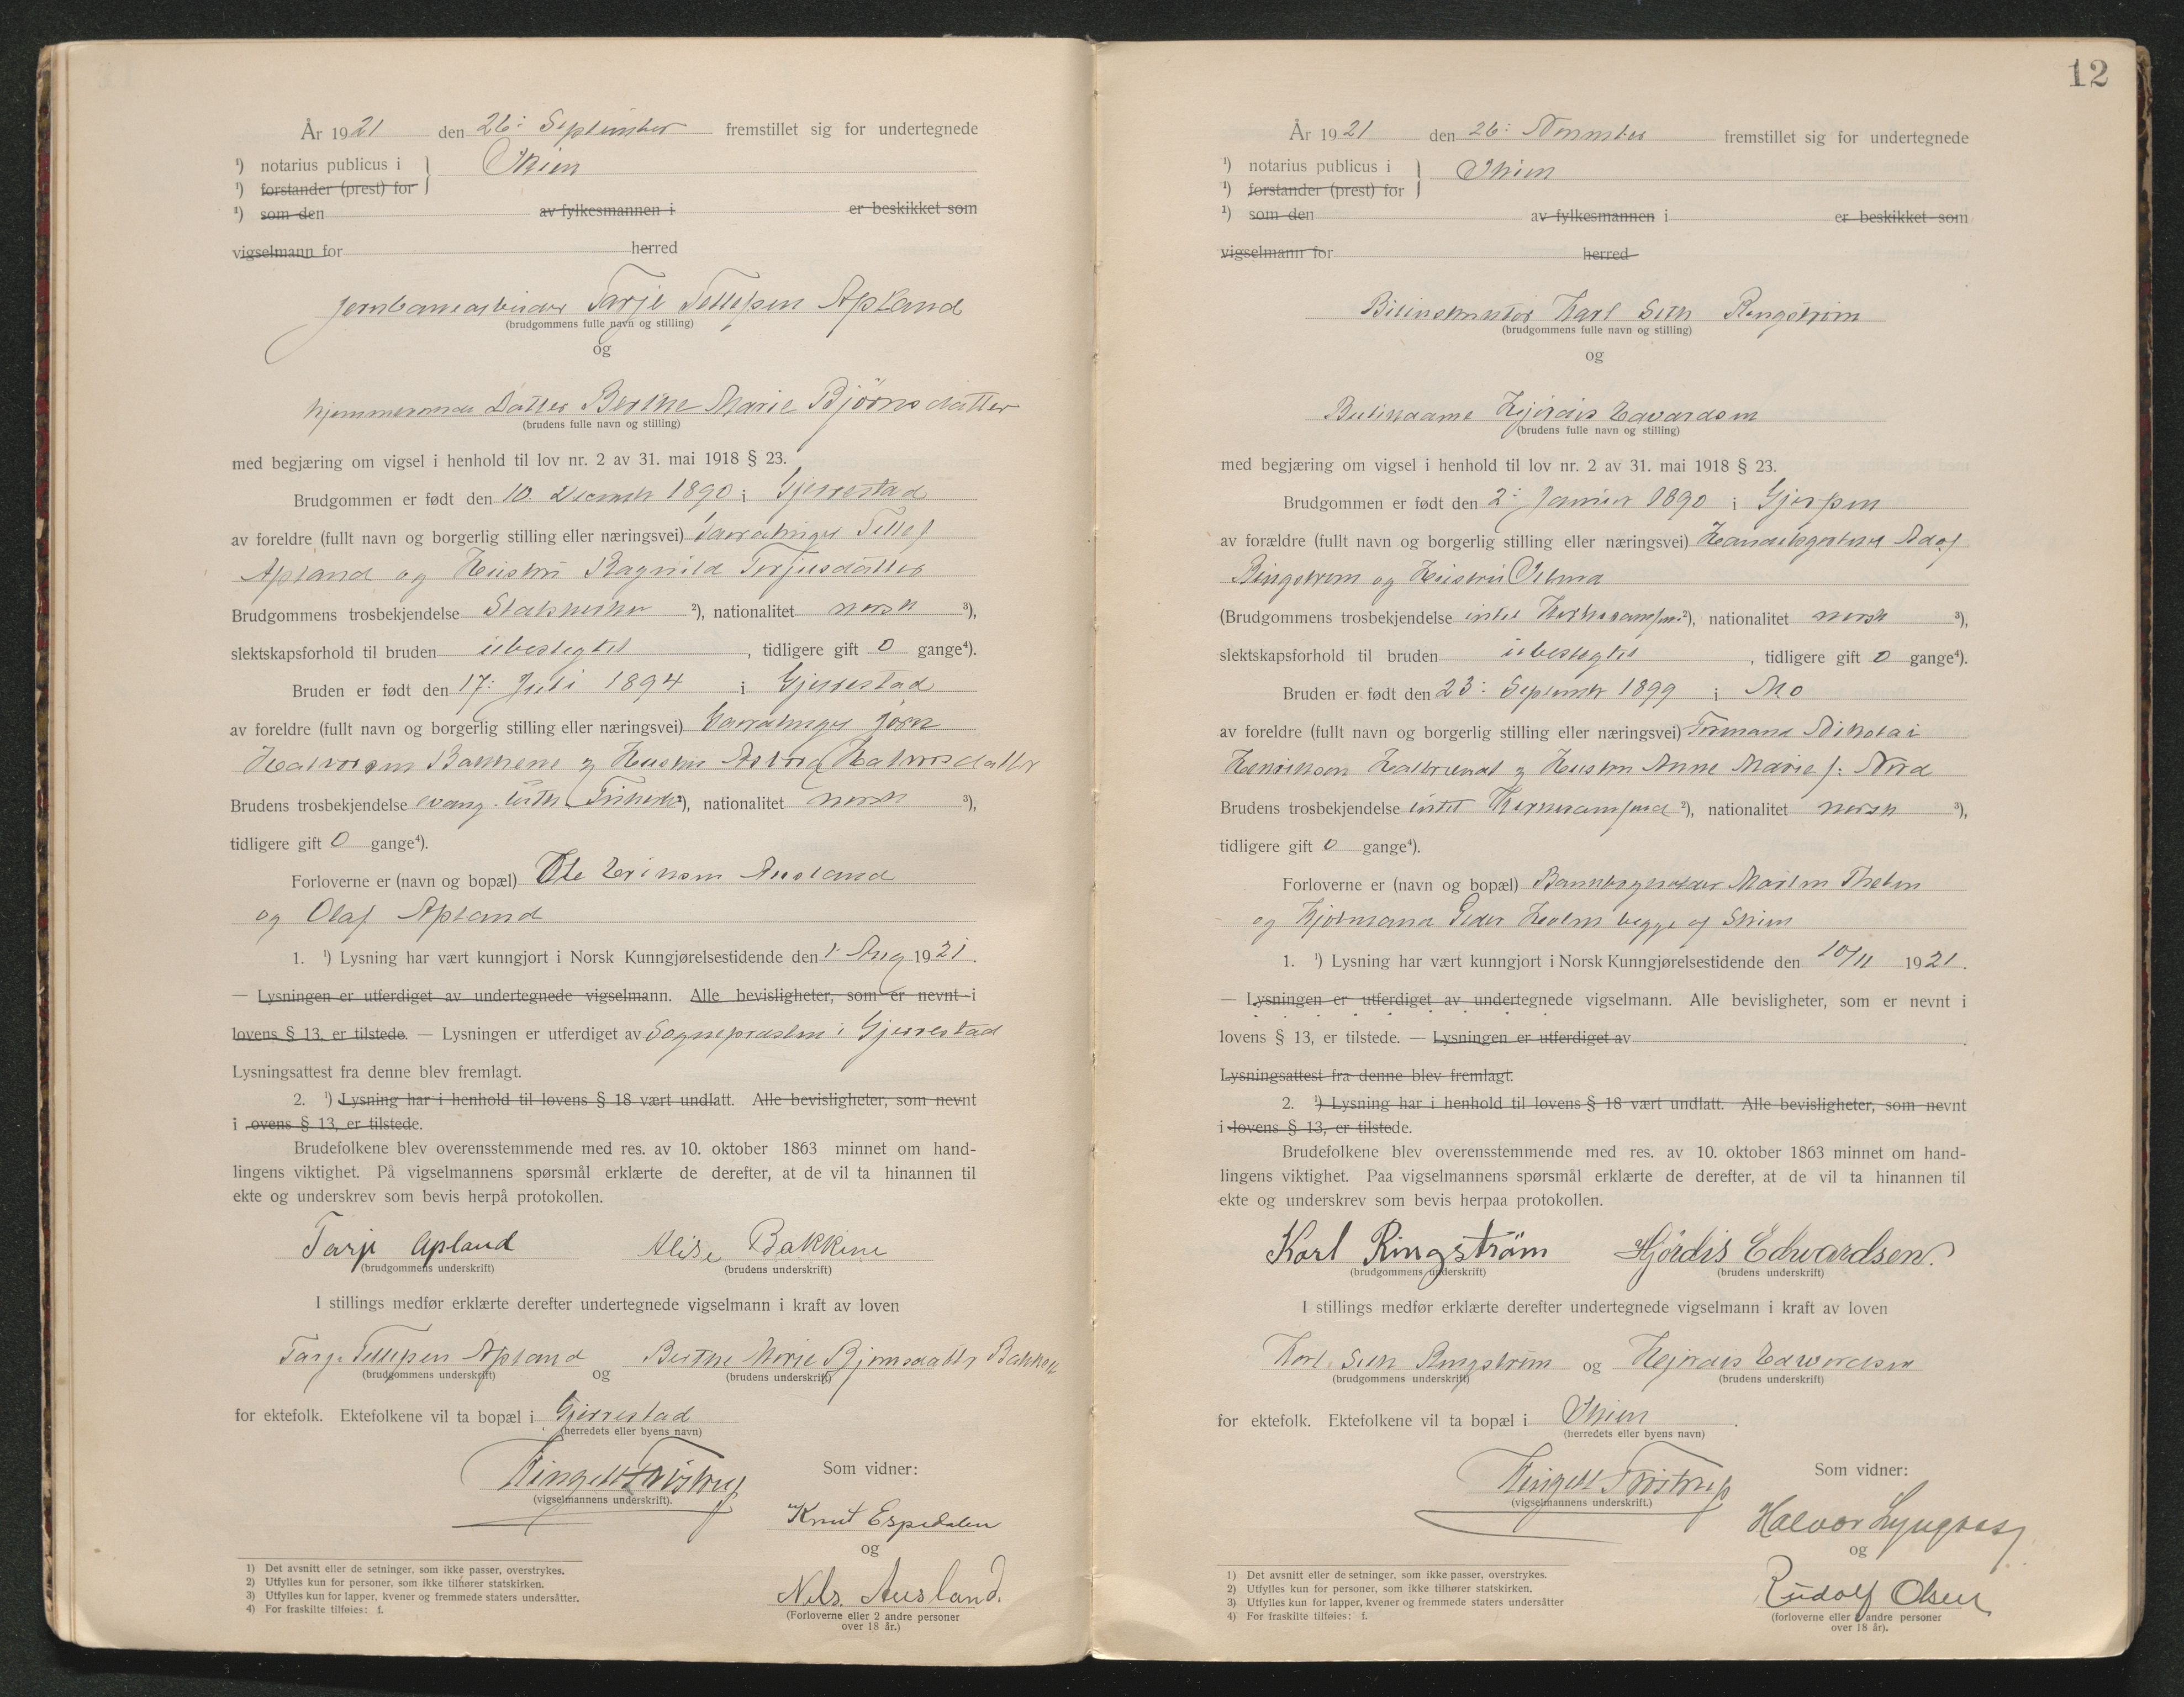 År 1921 den 26: September fremstillet sig for undertegnede
¹) notarius publicus i } Skien
¹) forstander (prest) for
¹) som den av fylkesmannen i er beskikket som
vigselmann for herred
Jernbanearbeider Tarje Tellefsen Apland
(brudgommens fulle navn og stilling)
og
hjemmeværende Datter Berthe Marie Bjørnsdatter
(brudens fulle navn og stilling)
med begjæring om vigsel i henhold til lov nr. 2 av 31. mai 1918 § 23.
Brudgommen er født den 10. Decembr 1890 i Gjerrestad
av foreldre (fullt navn og borgerlig stilling eller næringsvei) Gaardbruger Tellef
Apland og Hustru Ragnild Terjusdatter
Brudgommens trosbekjendelse Statskirken ²), nationalitet norsk ³),
slektskapsforhold til bruden ubeslegtet , tidligere gift 0 gange⁴).
Bruden er født den 17: Juli 1894 i Gjerrestad
av foreldre (fullt navn og borgerlig stilling eller næringsvei) Gaardbruger
Halvorsen Bakkene og Hustru Halvorsdatter
Brudens trosbekjendelse evang. luth. Frikirke ²), nationalitet norsk ³),
tidligere gift 0 gange⁴).
Forloverne er (navn og bopæl) Ole Eriksen Ausland
og Olaf Apland
1. ¹) Lysning har vært kunngjort i Norsk Kunngjørelsestidende den 1 Aug 1921.
— Lysningen er utferdiget av undertegnede vigselmann. Alle bevisligheter, som er nevnt i
lovens § 13, er tilstede. — Lysningen er utferdiget av Sognepresten i Gjerrestad
Lysningsattest fra denne blev fremlagt.
2. ¹) Lysning har i henhold til lovens § 18 vært undlatt. Alle bevisligheter, som nevnt
i lovens § 13, er tilstede.
Brudefolkene blev overensstemmende med res. av 10. oktober 1863 minnet om hand-
lingens viktighet. På vigselmannens spørsmål erklærte de derefter, at de vil ta hinannen til
ekte og underskrev som bevis herpå protokollen.
Tarje Apland Alise Bakkene
(brudgommens underskrift) (brudens underskrift)
I stillings medfør erklærte derefter undertegnede vigselmann i kraft av loven
Tarje Tellefsen Apland og Berthe Marie Bjørnsdatter Bakken
(brudgommens underskrift) (brudens underskrift)
for ektefolk. Ektefolkene vil ta bopæl i Gjerrestad
(herredets eller byens navn)
Trøstrup
(vigselmannens underskrift).
Som vidner:
Knut Espedalen
og
Nils Ausland.
(Forloverne eller 2 andre personer
over 18 år.)
1) Det avsnitt eller de setninger, som ikke passer, overstrykes.
2) Utfylles kun for personer, som ikke tilhører statskirken.
3) Utfylles kun for lapper, kvener og fremmede staters undersåtter.
4) For fraskilte tilføies: f.
12
År 1921 den 26: November fremstillet sig for undertegnede
¹) notarius publicus i } Skien
¹) forstander (prest) for
¹) som den av fylkesmannen i er beskikket som
vigselmann for herred
Karl Seth Ringstrøm
(brudgommens fulle navn og stilling)
og
Butikdame Hjørdis Edvardsen
(brudens fulle navn og stilling)
med begjæring om vigsel i henhold til lov nr. 2 av 31. mai 1918 § 23.
Brudgommen er født den 2: Januar 1890 i Gjerpen
av forældre (fullt navn og borgerlig stilling eller næringsvei) Adolf
Ringstrøm og Hustru
(Brudgommens trosbekjendelse intet Kirkesamfund ²), nationalitet norsk ³),
slektskapsforhold til bruden ubeslegtet , tidligere gift 0 gange⁴).
Bruden er født den 23: Septembr 1899 i Mo
av foreldre (fullt navn og borgerlig stilling eller næringsvei) Formand Nikolai
Henriksen og Hustru Anne Marie f. Nord
Brudens trosbekjendelse intet Kirkesamfund ²), nationalitet norsk ³),
tidligere gift 0 gange⁴).
Forloverne er (navn og bopæl) Martin
og Peder Holm begge af Skien
1. ¹) Lysning har vært kunngjort i Norsk Kunngjørelsestidende den 10/11 1921.
— Lysningen er utferdiget av undertegnede vigselmann. Alle bevisligheter, som er nevnt i
lovens § 13, er tilstede. — Lysningen er utferdiget av
Lysningsattest fra denne blev fremlagt.
2. ¹) Lysning har i henhold til lovens § 18 vært undlatt. Alle bevisligheter, som nevnt
i lovens § 13, er tilstede.
Brudefolkene blev overensstemmende med res. av 10. oktober 1863 minnet om hand-
lingens viktighet. Paa vigselmannens spørsmål erklærte de derefter, at de vil ta hinannen til
ekte og underskrev som bevis herpaa protokollen.
Karl Ringström Hjördis Edwardsen.
(brudgommens underskrift) (brudens underskrift)
I stillings medfør erklærte derefter undertegnede vigselmann i kraft av loven
Karl Seth Ringstrøm og Hjørdis Edwardsen
(brudgommens underskrift) (brudens underskrift)
for ektefolk. Ektefolkene vil ta bopæl i Skien .
(herredets eller byens navn)
Trøstrup
(vigselmannens underskrift.)
Som vidner:
Halvor
og
Rudolf Olsen
(forloverne eller 2 andre personer
over 18 år).
1) Det avsnitt eller de setninger, som ikke passer, overstrykes.
2) Utfylles kun for personer, som ikke tilhører statskirken.
3) Utfylles kun for lapper, kvener og fremmede staters undersåtter
4) For fraskilte tilføies: f.